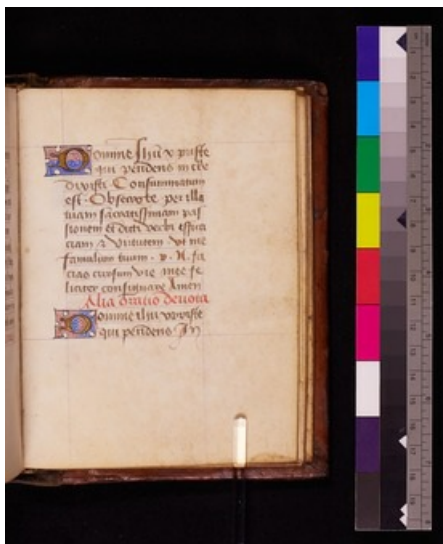 Domine Ihu x p̄iste
qui pendens in cru
dixisti Consummatum
est. Obsecro te per illa
tuam sacratissimam pas
sionem et dicti verbi effica
ciam & virtutem vt me
famulum tuum . N . fa
cias cursum vie mee fe
liciter consumare Amen
Alia oratio deuota
Domine ihu
qui pendens In